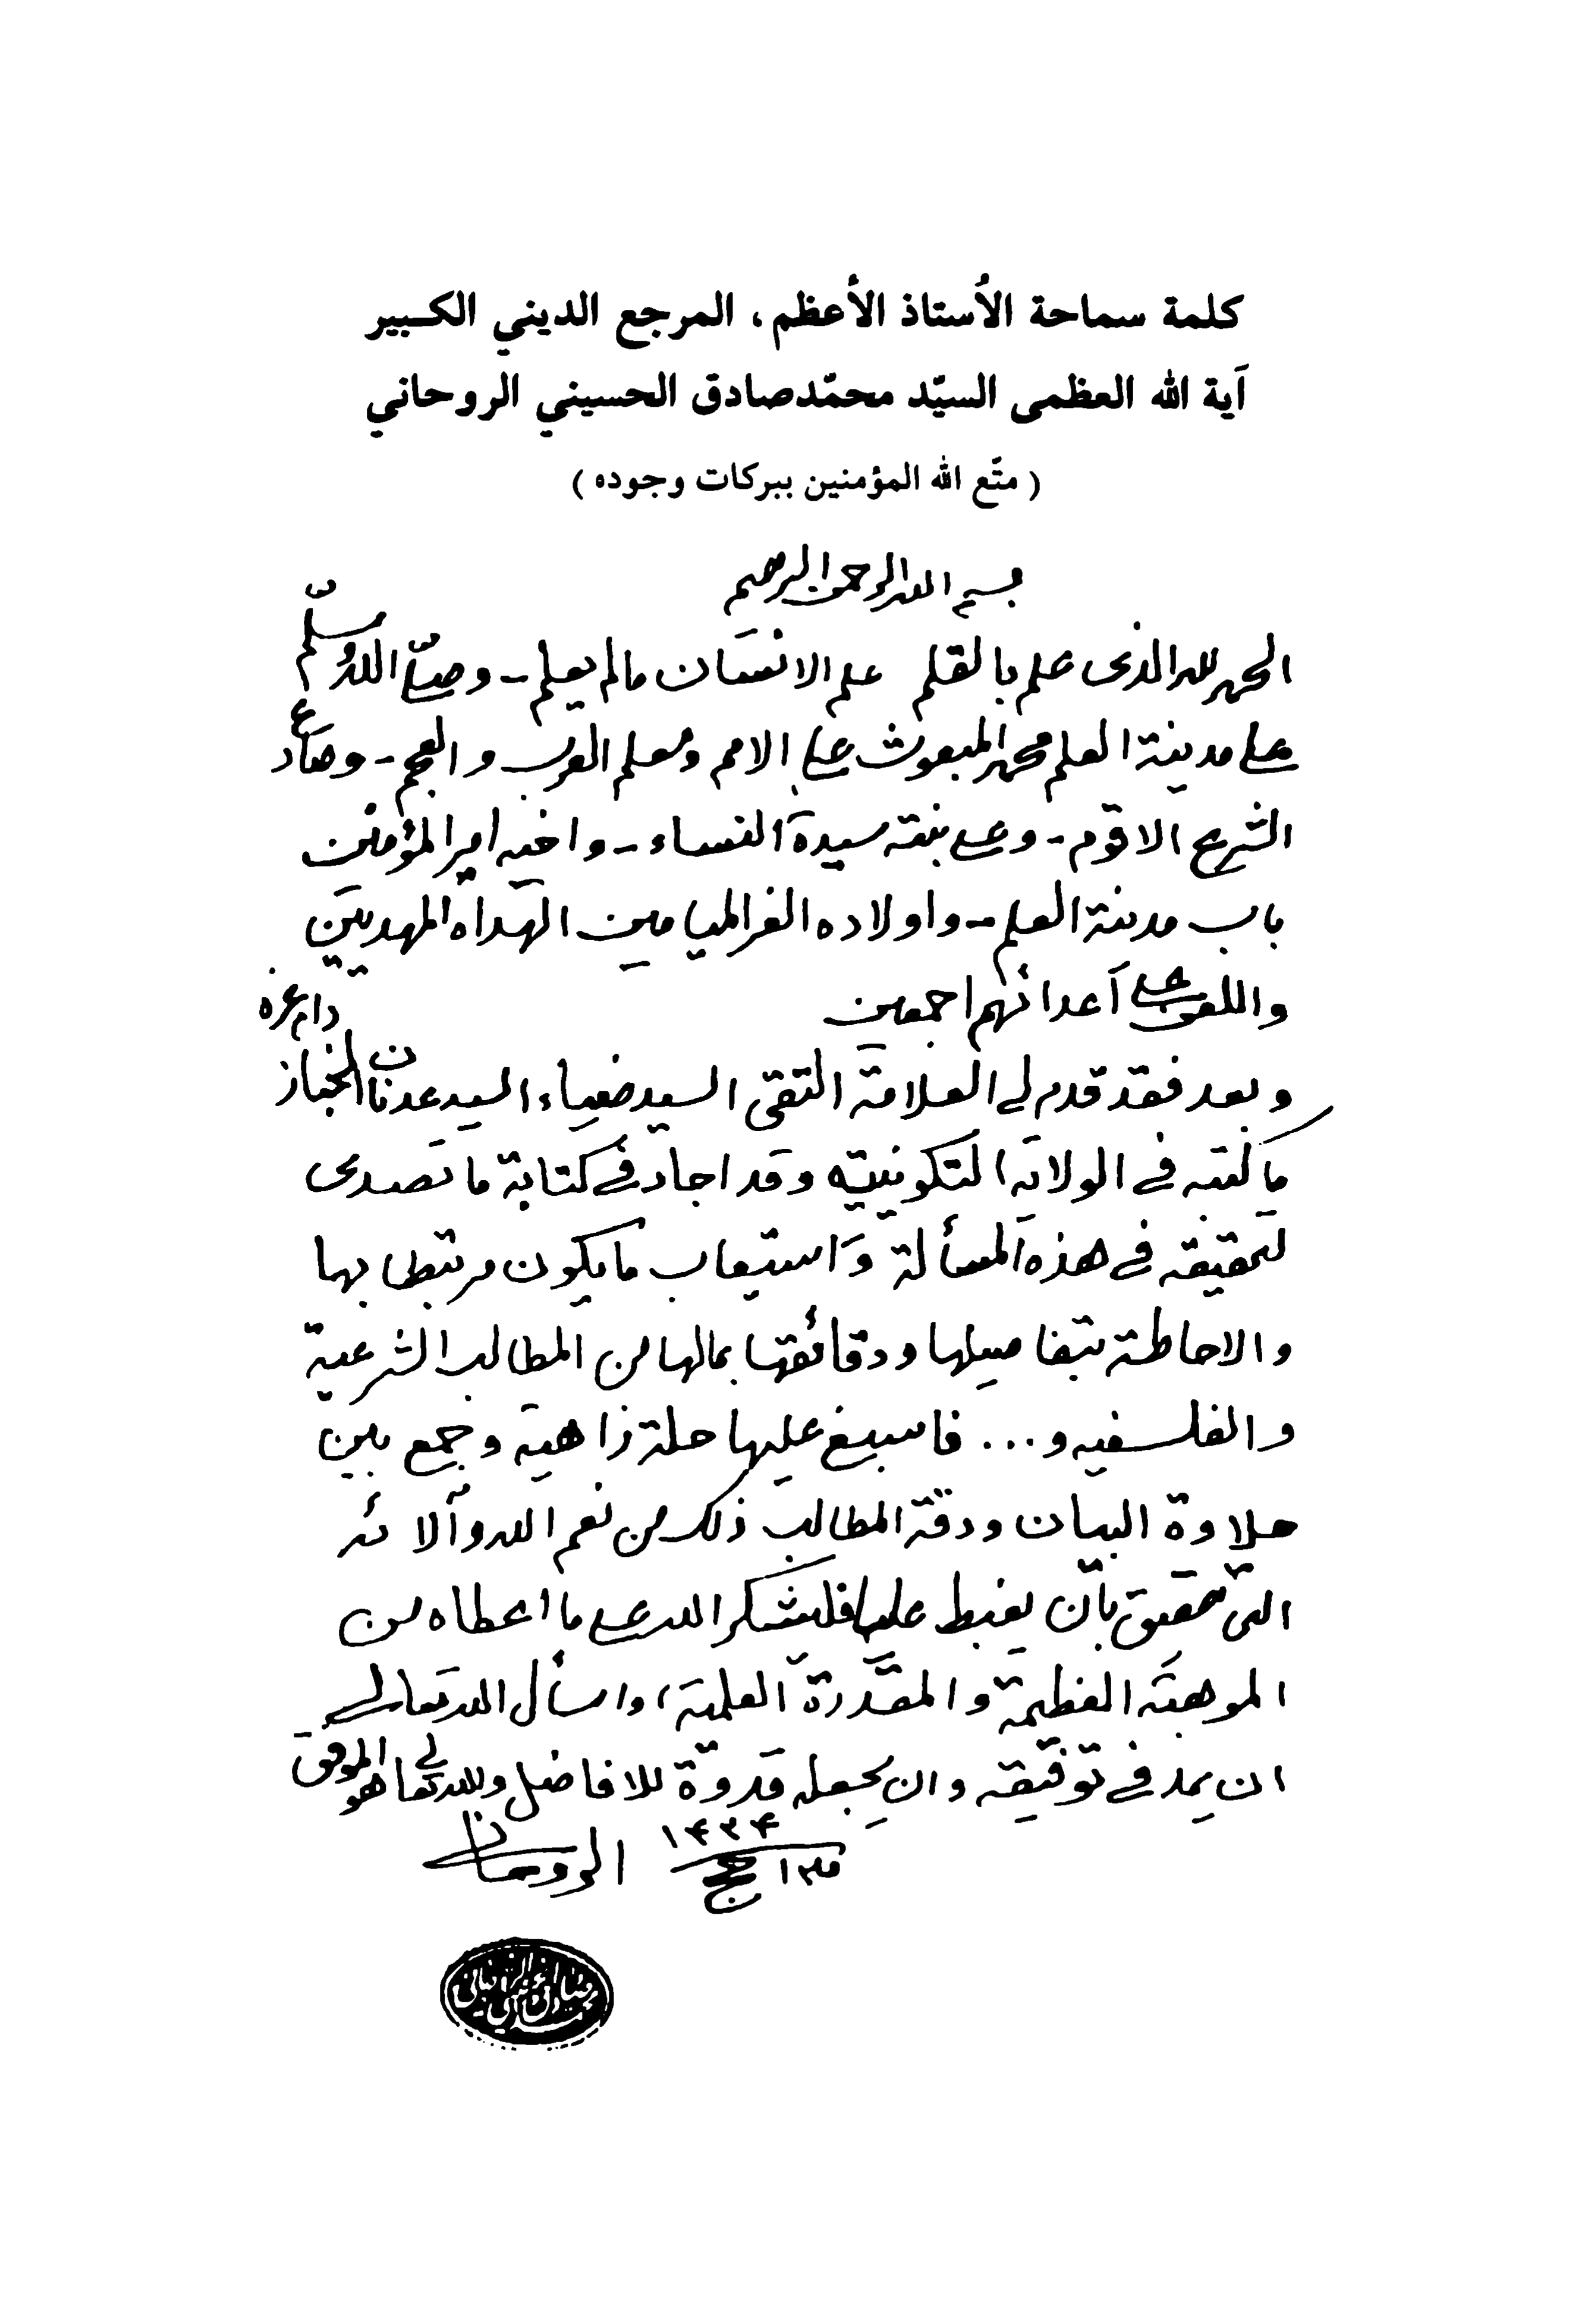 كلمة سماحة الأستاذ الأعظم، المرجع الديني الكبير
آية الله العظمى السيّد محمّدصادق الحسيني الروحاني
(متّع الله المؤمنين ببركات وجوده)
بسم الله الرحمن الرحيم
الحمد لله الذى علم بالقلم علم الانسان مالم يعلم - وصلى الله وسلّم
على مدينة العلم محمد المبعوث على الامم ومعلم العرب والعجم - وصادع
الشرع الاقوم - وعلى بنته سيدة النساء - واخيه امير المؤمنين
باب مدينة العلم - واولاده الغر الميامين الهداه المهديين
واللعن على أعدائهم اجمعين
وبعد فقد قدم لي العلامة التقى السيد ضياء السيد عدنان الخباز دام عزه
ما كتبه في الولاية التكوينيه وقد اجاد في كتابة ما تصدى
لتحقيقه في هذه المسألة واستيعاب ما يكون مرتبطا بها
والاحاطة بتفاصيلها ودقائقها بمالها من المطالب الشرعية
والفلسفيه و... فاسبغ عليها حلة زاهية وجمع بين
حلاوة البيان ودقة المطالب ذلك من نعم الله وآلائه
التى حقيق بأن يغبط عليها فليشكر الله على ما اعطاه من
الموهبة العظيمة والمقدرة العلمية، واسأل الله تعالى
ان يمد في توفيقه وان يجعله قدوة للافاضل والله تعالى هو الموفق
١٤٣٤
الروحاني